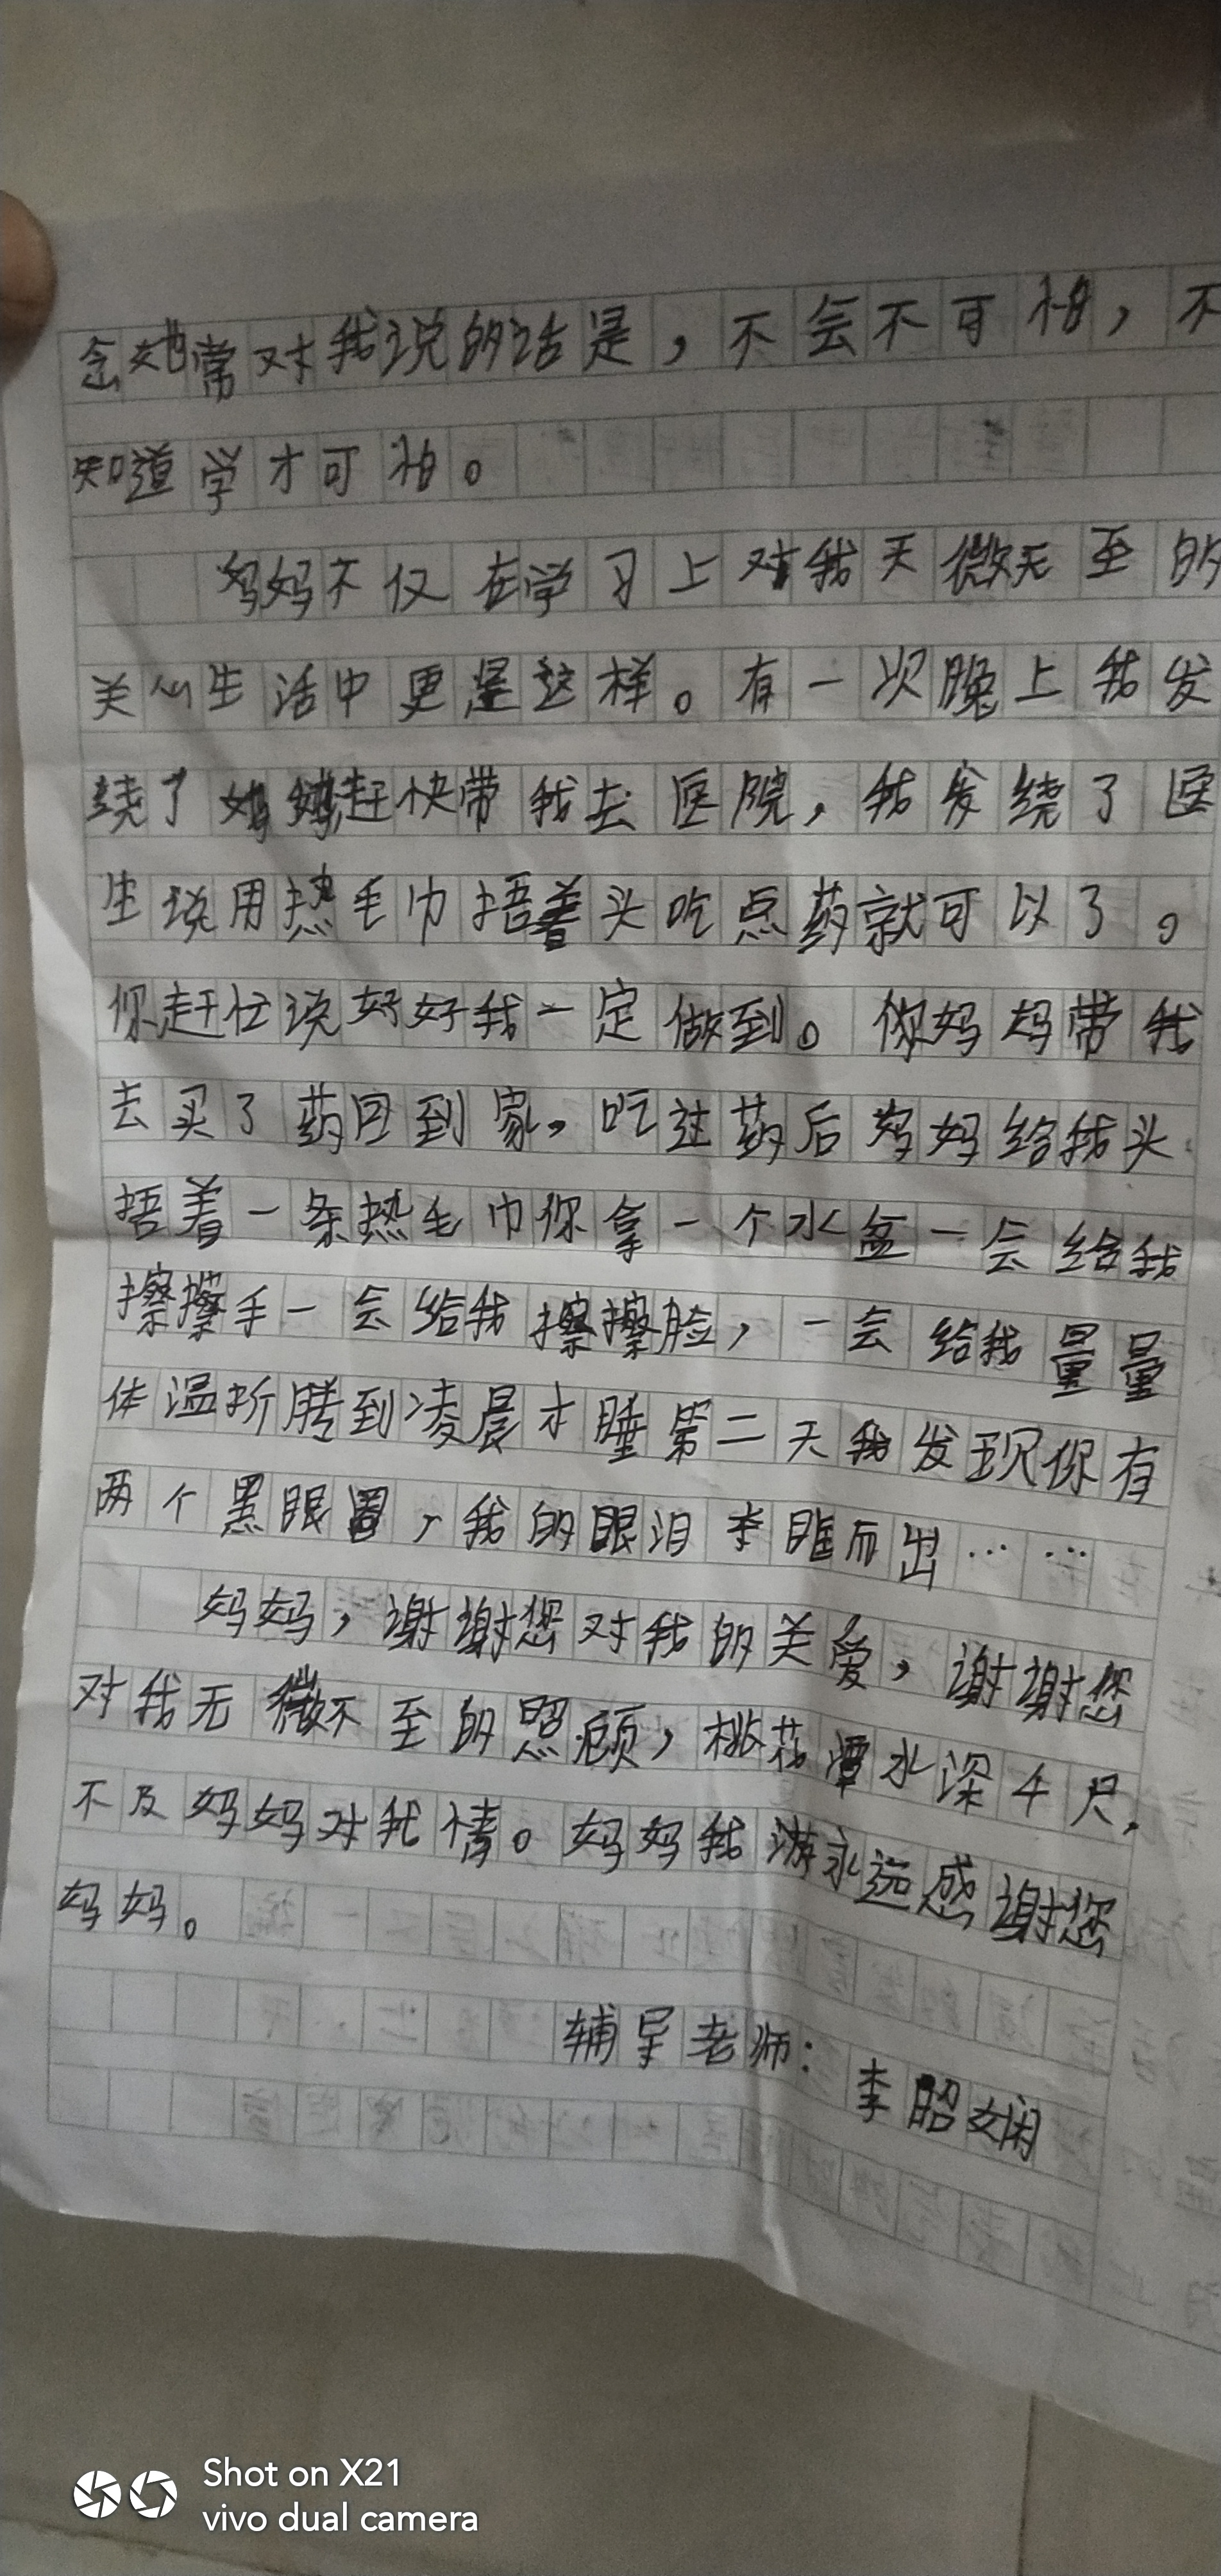 念她常对我说的话是，不会不可怕，不
知道学才可怕。
妈妈不仅在学习上对我天微无至的
关心生活中更是这样。有一次晚上我发
绕了妈妈赶快带我去医院，我发绕了医
生说用热毛巾捂着头吃点药就可以了。
你赶忙说好好我一定做到。你妈妈带我
去买了药回到家，吃过药后妈妈给我头
捂着一条热毛巾你拿一个水盆一会给我
擦擦手一会给我擦擦脸，一会给我量量
体温折腾到凌晨才睡第二天我发现你有
两个黑眼圈，我的眼泪夺眶而出……
妈妈，谢谢您对我的关爱，谢谢您
对我无微不至的照顾，桃花潭水深千尺，
不及妈妈对我情。妈妈我游永远感谢您
妈妈。
辅导老师：李昭娴
Shot on X21
vivo dual camera